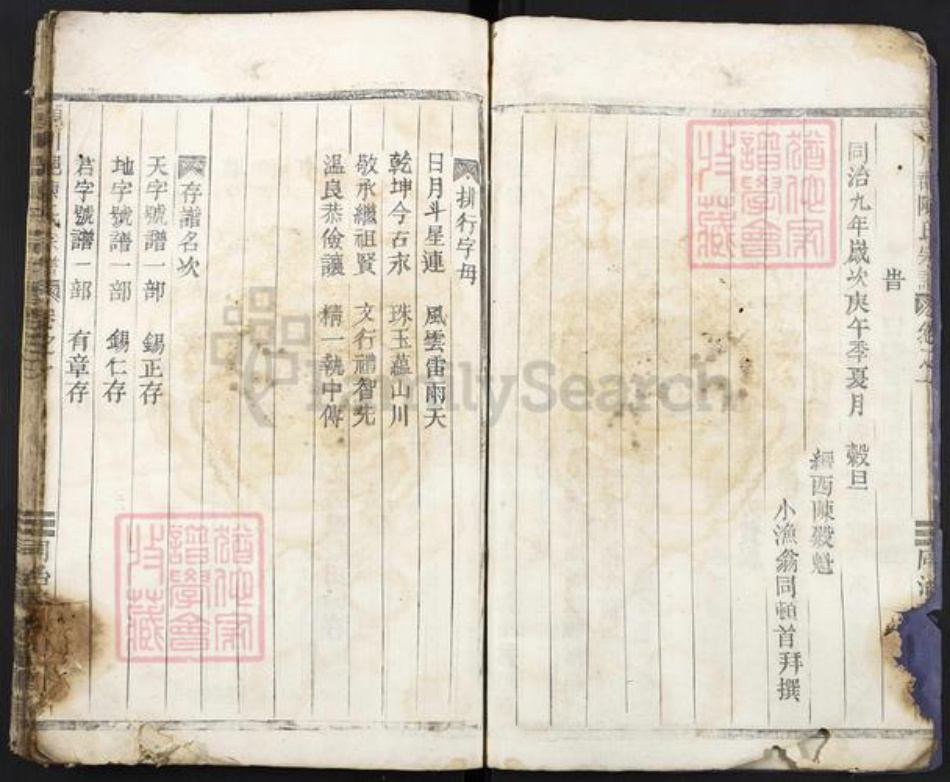 昔
同治九年歲次庚午季夏月　穀旦
西陳毅魁
小漁翁同頓首拜撰
排行字母
日月斗星連　風雲雷雨天
乾坤今古永　珠玉蘊山川
敬承繼祖賢　文行禮智先
溫良恭儉讓　精一執中傳
存譜名次
天字號譜一部　錫正存
地字號譜一部　錫仁存
字號譜一部　有章存
同治
同治
譜學會
收藏
譜學會
收藏
FamilySearch